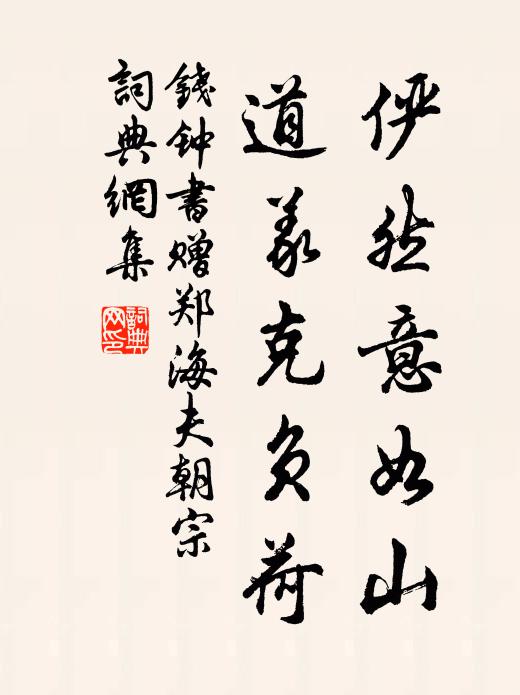 俨然意如山
道义克负荷
錢钟書赠郑海夫朝宗
詞典網集
詞典网印